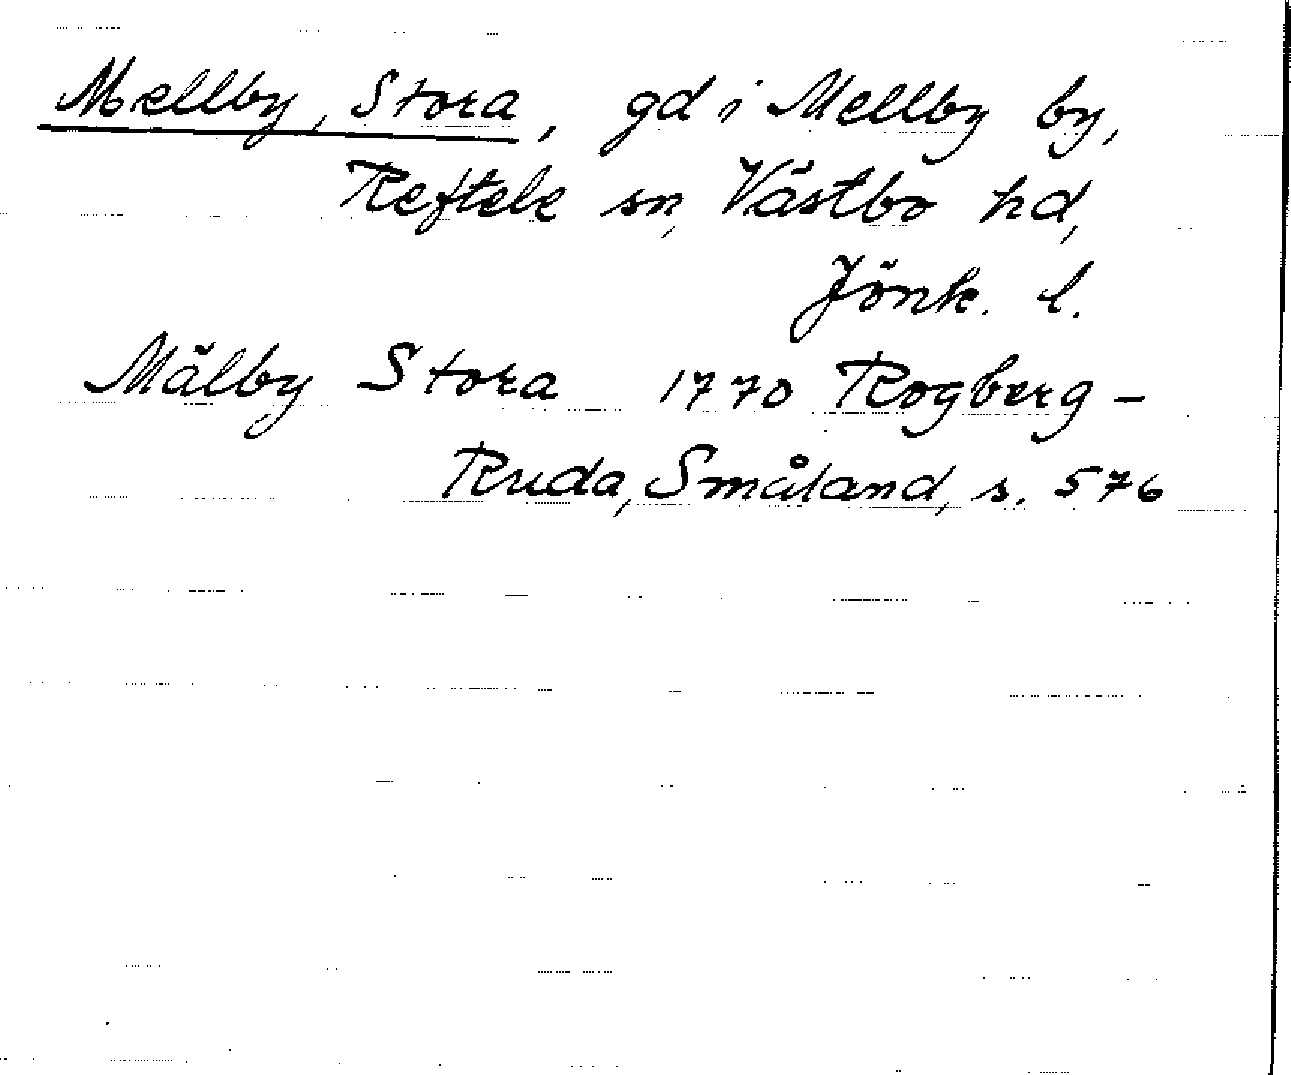 Mellby, Stora, gd i Mellby by,
Reftele sn, Västbo hd,
Jönk. l.
Mälby Stora 1770 Rogberg-
Ruda, Småland, s. 576